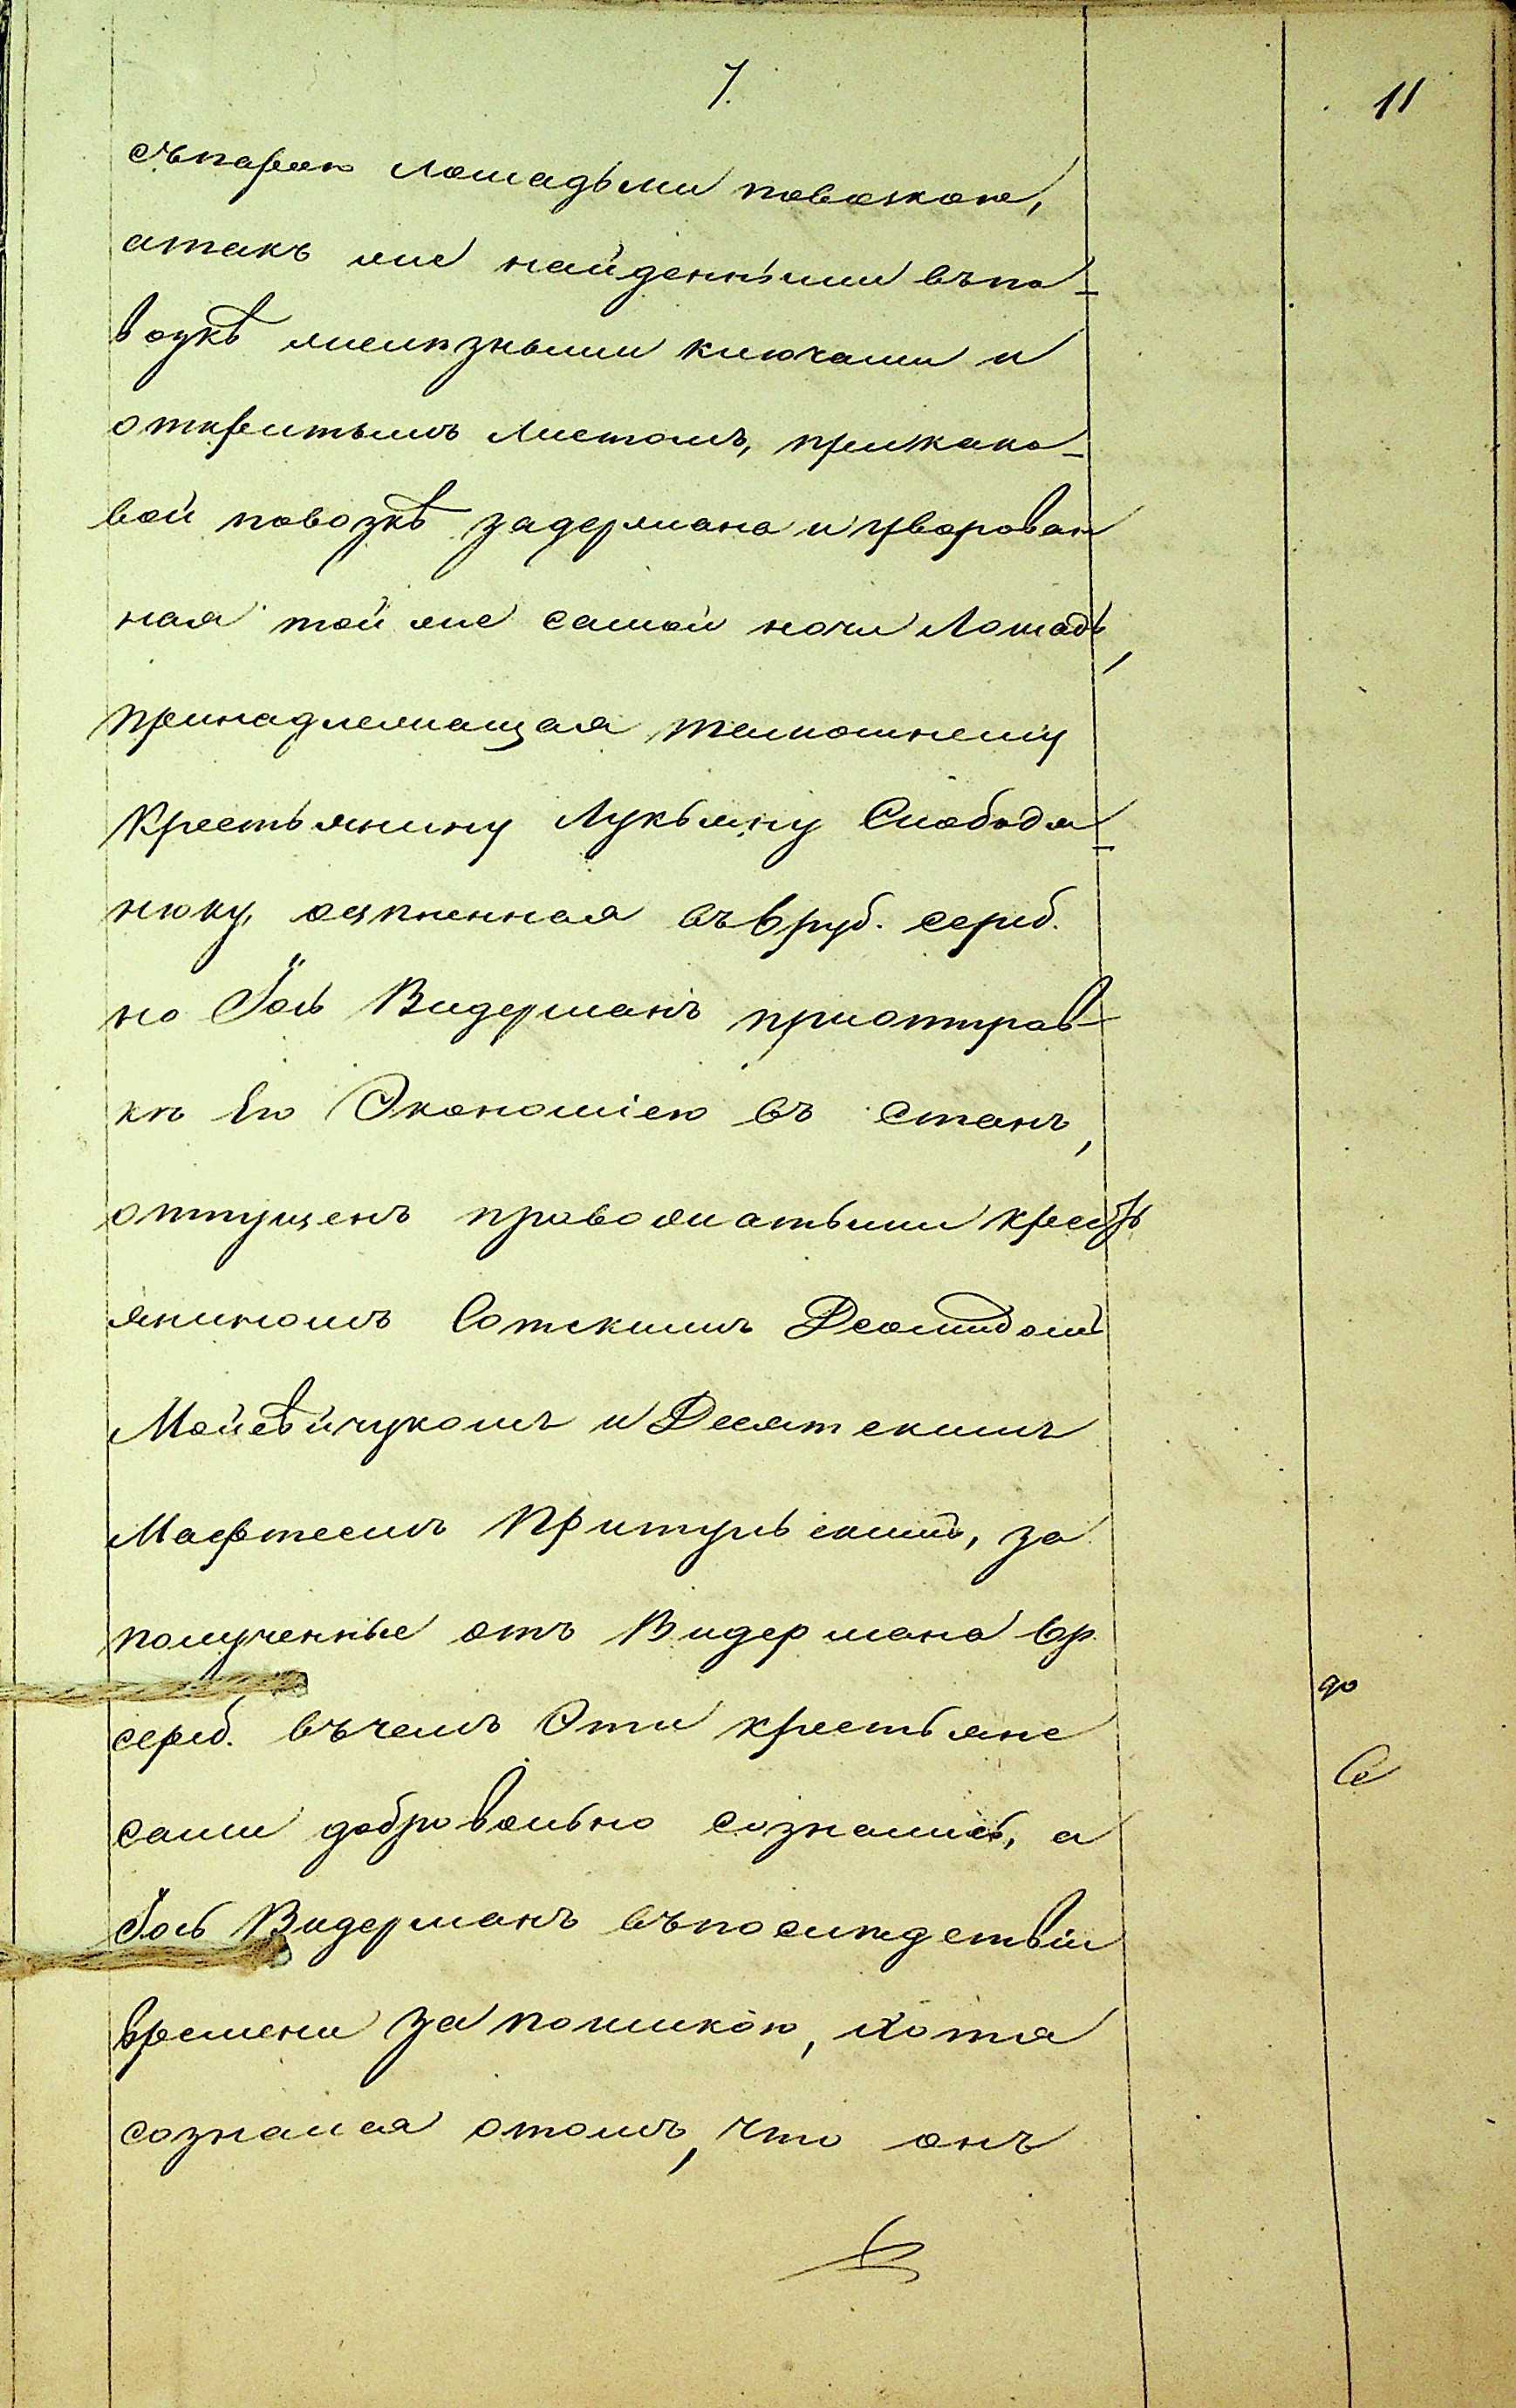 7.
11
съпарою лошадьми повозкою,
атакъ же найденными въпо-
возкѣ желѣзными ключами и
открытымъ листомъ, прижако-
вой повозкѣ задержана и уворован
ная той же самой ночи лошадь,
принадлежащая тамошнему
крестьянину Лукьяну Слободя-
нюку, оцѣненная въ 6 руб. сереб.
но Іось Видерманъ приотправ-
кѣ Его Экономіею въ станъ,
отпущенъ провожатыми кресть
яниномъ Сотскимъ Деомидомъ
Мойсѣйчукомъ и Десятскимъ
Мафтеемъ Притульскимъ, за
полученные отъ Видермана 6 р.
сереб. въчемъ Эти крестьяне
сами добровольно сознались, а
Іось Видерманъ въпослѣдствіи
времени за поимкою, хотя
сознался отомъ, что онъ
до
Се